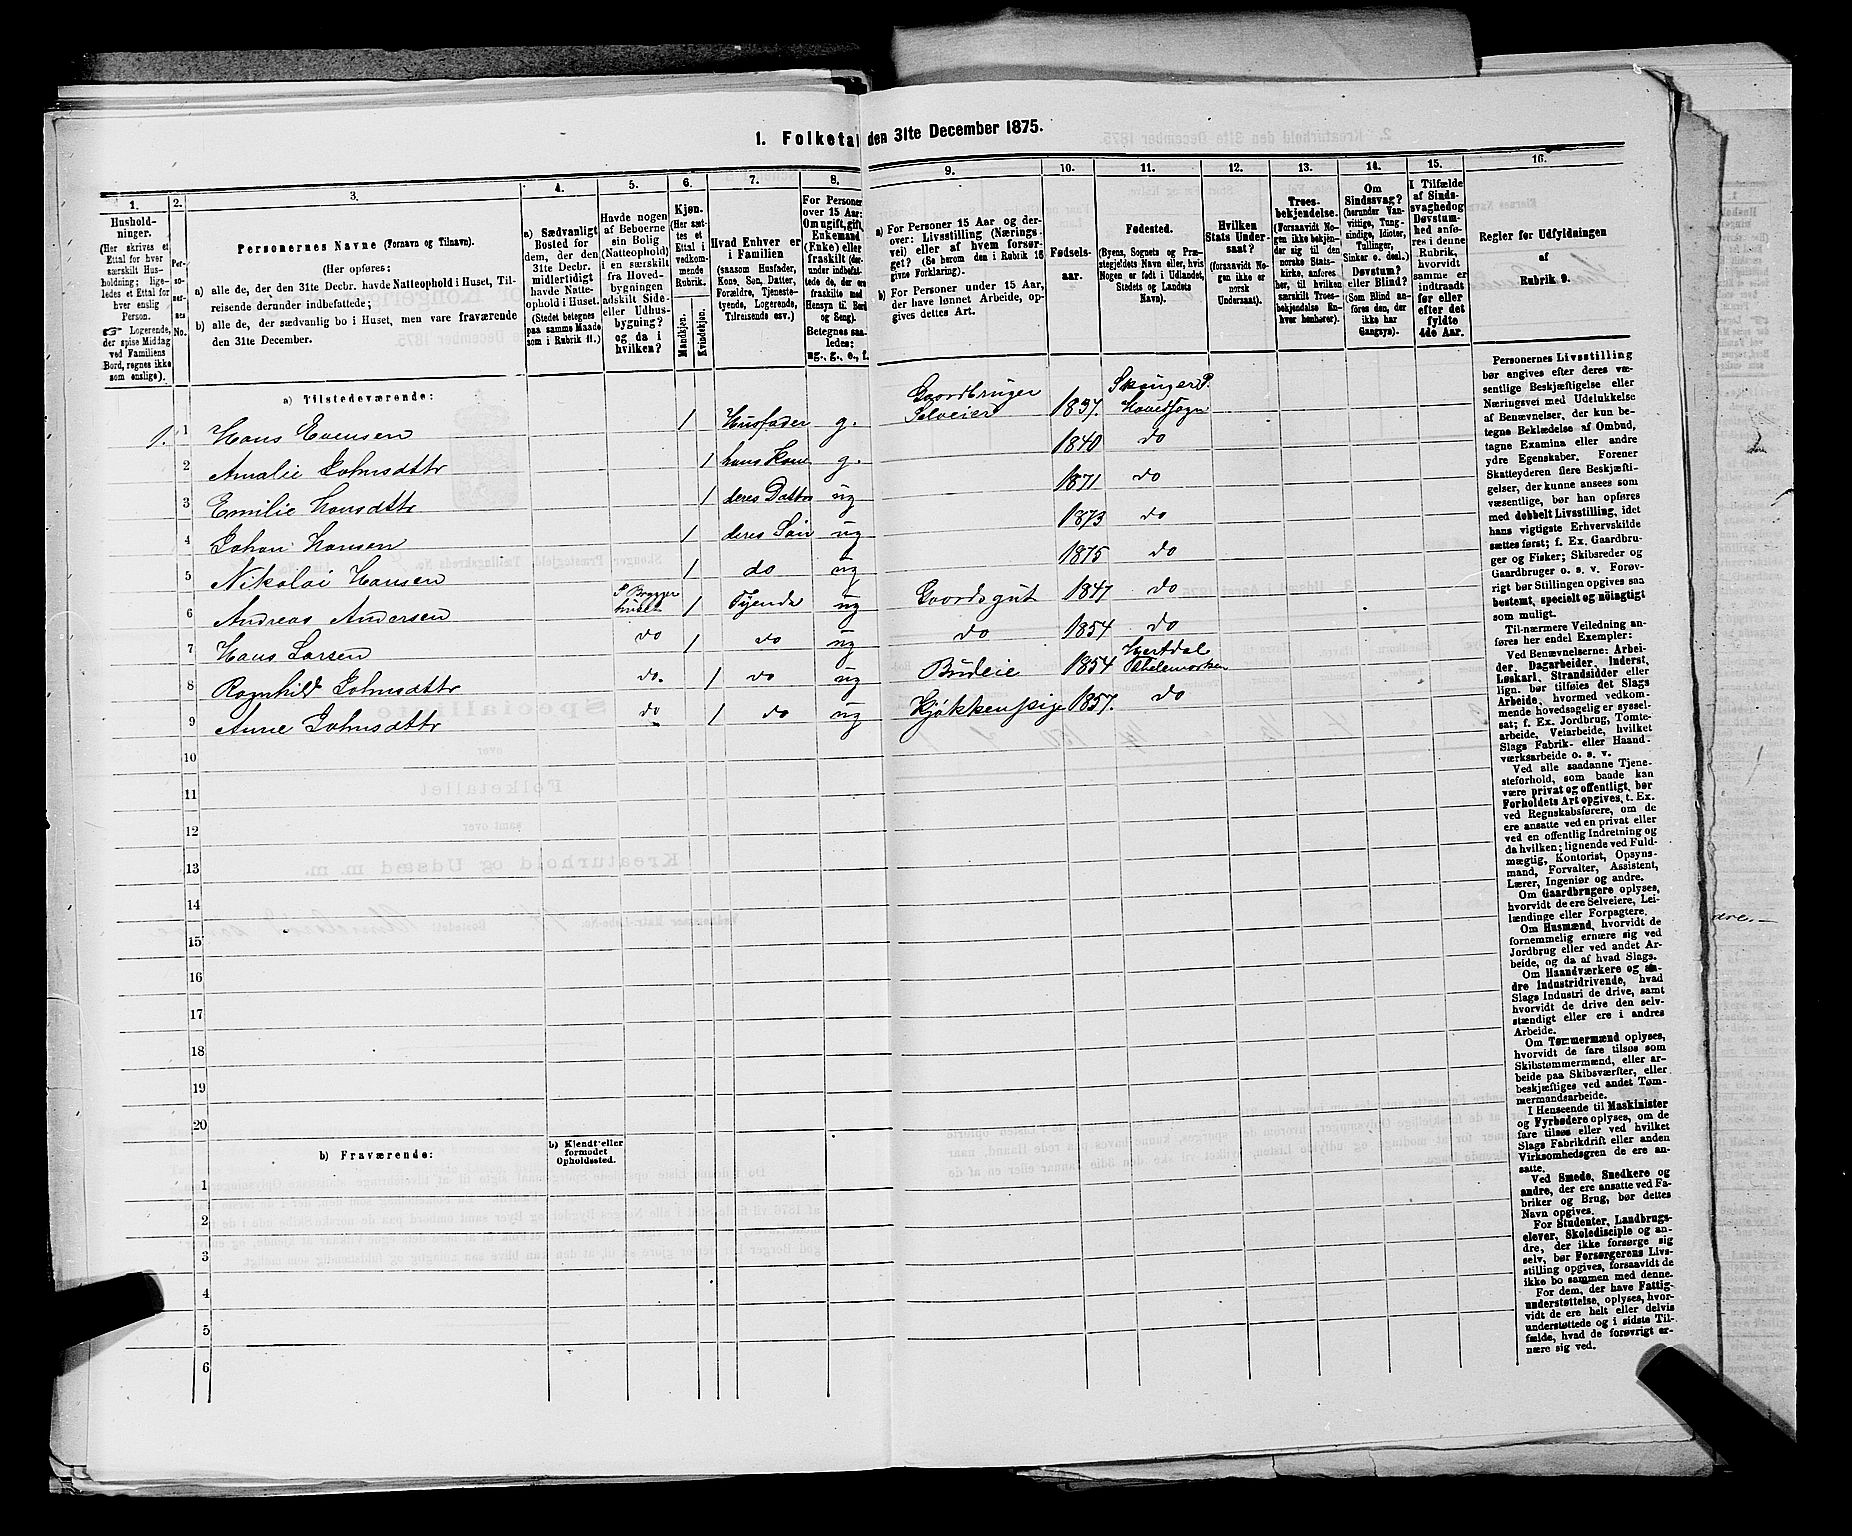 1. Folketal den 31te December 1875.
1. 2. 3. 4. 5. 6. 7. 8. 9. 10. 11. 12. 13. 14. 15. 16.
Hushold-
ninger.
(Her skrives et
Ettal for hver
særskilt Hus-
holdning; lige-
ledes et Ettal for
hver enslig
Person.
☞ Logerende,
der spise Middag
ved Familiens
Bord, regnes ikke
som enslige).
Per-
so-
ner-
nes
No.
Personernes Navne (Fornavn og Tilnavn).
(Her opføres:
a) alle de, der den 31te Decbr. havde Natteophold i Huset, Til-
reisende derunder indbefattede;
b) alle de, der sædvanlig bo i Huset, men vare fraværende
den 31te December.
a) Sædvanligt
Bosted for
dem, der den
31te Decbr.
midlertidigt
havde Natte-
ophold i Huset.
(Stedet betegnes
paa samme Maade
som i Rubrik 11.)
Havde nogen
af Beboerne
sin Bolig
(Natteophold)
i en særskilt
fra Hoved-
bygningen
adskilt Side-
eller Udhus-
bygning?
og da i
hvilken?
Kjøn.
(Her sæt-
tes et
Ettal i
vedkom-
mende
Rubrik.
Mandkjøn.
Kvindekjøn.
Hvad Enhver er
i Familien
(saasom Husfader,
Kone, Søn, Datter,
Forældre, Tjeneste-
tyende, Logerende,
Tilreisende osv.)
For Personer
over 15 Aar:
Om ugift, gift,
Enkemand
(Enke) eller
fraskilt
Betegnes saa-
ledes:
ug., g., e., f.
a) For Personer 15 Aar og der-
over: Livsstilling (Nærings-
vei) eller af hvem forsør-
get? (Se herom den i Rubrik 16
givne Forklaring).
b) For Personer under 15 Aar,
der have lønnet Arbeide, op-
gives dettes Art.
Fødsels-
aar.
Fødested.
(Byens, Sognets og Præ-
stegjeldets Navn eller, hvis
Nogen er født i Udlandet,
Stedets og Landets
Navn).
Hvilken
Stats Under-
saat?
(forsaavidt No-
gen ikke er
norsk
Undersaat).
Troes-
bekjendelse.
(Forsaavidt No-
gen ikke bekjen-
der sig til den
norske Stats-
kirke, anføres
her, til hvilken
særskilt Troes-
bekjendelse En-
hver henhører).
Om
Sindssvag?
(herunder Van-
vittige, Tung-
sindige, Idioter,
Tullinger,
Sinker o. desl.)
Døvstum?
eller Blind?
(Som Blind an-
føres den, der
ikke har
Gangsyn).
I Tilfælde
af Sinds-
svaghed og
Døvstum-
hed anfø-
res i denne
Rubrik,
hvorvidt
samme er
indtraadt
før eller
efter det
fyldte
4de Aar.
Regler før Udfyldningen
af
Rubrik 9.
a) Tilstedeværende:
1. 1 Hans Evensen 1 Husfader g. Gaardbruger Selveier 1837. Skouger P. Hovedsogn
2 Amalie Johnsdttr 1 hans Kone g. 1840 do
3 Emilie Hansdttr 1 deres Datter ug 1871 do
4 Johan Hansen 1 deres Søn ug 1873 do
5 Nikolai Hansen 1 do ug 1875 do
6 Andreas Andersen I Brygger huset 1 Tyende ug Gaardsgut 1847 do
7 Hans Larsen do 1 do ug do 1854 do
8 Ragnhild Johnsdttr do. 1 do ug Budeie 1854 Hvertdal Thelemarken
9 Anne Johnsdttr do 1 do ug Kjøkkenpige 1857. do
10
11
12
13
14
15
16
17
18
19
20
b) Fraværende:
b) Kjendt eller
formodet
Opholdssted.
1
2
3
4
5
6
Personernes Livsstilling
bør angives efter deres væ-
sentlige Beskjæftigelse eller
Næringsvei med Udelukkelse
af Benævnelser, der kun be-
tegne Beklædelse af Ombud,
tagne Examina eller andre
ydre Egenskaber. Forener
Skatteyderen flere Beskjæfti-
gelser, der kunne ansees som
væsentlige, bør han opføres
med dobbelt Livsstilling, idet
hans vigtigste Erhvervskilde
sættes først; f. Ex. Gaardbru-
ger og Fisker; Skibsreder og
Gaardbruger o. s. v. Forøv-
rigt bør Stillingen opgives saa
bestemt, specielt og nöiagtigt
som muligt.
Til nærmere Veiledning an-
føres her endel Exempler:
Ved Benævnelserne: Arbei-
der, Dagarbeider, Inderst,
Løskarl, Strandsidder eller
lign. bør tilføies det Slags
Arbeide, hvormed vedkom-
mende hovedsagelig er syssel-
sat; f. Ex. Jordbrug, Tomte-
arbeide, Veiarbeide, hvilket
Slags Fabrik- eller Haand-
værksarbeide o. s. v.
Ved alle saadanne Tjene-
steforhold, som baade kan
være privat og offentligt, bør
Forholdets Art opgives, t. Ex.
ved Regnskabsførere, om de
ere ansatte ved en privat eller
ved en offentlig Indretning og
da hvilken; lignende ved Fuld-
mægtig, Kontorist, Opsyns-
mand, Forvalter, Assistent,
Lærer, Ingeniør og andre.
Om Gaardbrugere oplyses,
hvorvidt de ere Selveiere, Lei-
lændinge eller Forpagtere.
Om Husmænd, hvorvidt de
fornemmelig ernære sig ved
Jordbrug eller ved andet Ar-
beide, og da af hvad Slags.
Om Haandværkere og an-
dre Industridrivende, hvad
Slags Industri de drive, samt
hvorvidt de drive den selv-
stændigt eller ere i andres
Arbeide.
Om Tømmermænd oplyses,
hvorvidt de fare tilsøs som
Skibstømmermænd, eller ar-
beide paa Skibsværfter, eller
beskjæftiges ved andet Tøm-
mermandsarbeide.
I Henseende til Maskinister
og Fyrbødere oplyses, om de
fare tilsøs eller ved hvilket
Slags Fabrikdrift eller anden
Virksomhedsgren de ere an-
satte.
Ved Smede, Snedkere og
andre, der ere ansatte ved Fa-
briker og Brug, bør dettes
Navn opgives.
For Studenter, Landbrugs-
elever, Skoledisciple og an-
dre, der ikke forsørge sig
selv, bør Forsørgerens Livs-
stilling opgives, forsaavidt de
ikke bo sammen med denne.
For dem, der have Fattig-
understøttelse, oplyses, hvor-
vidt de ere helt eller delvis
understøttede og i sidste Til-
fælde, hvad de forøvrigt er-
nære sig ved.